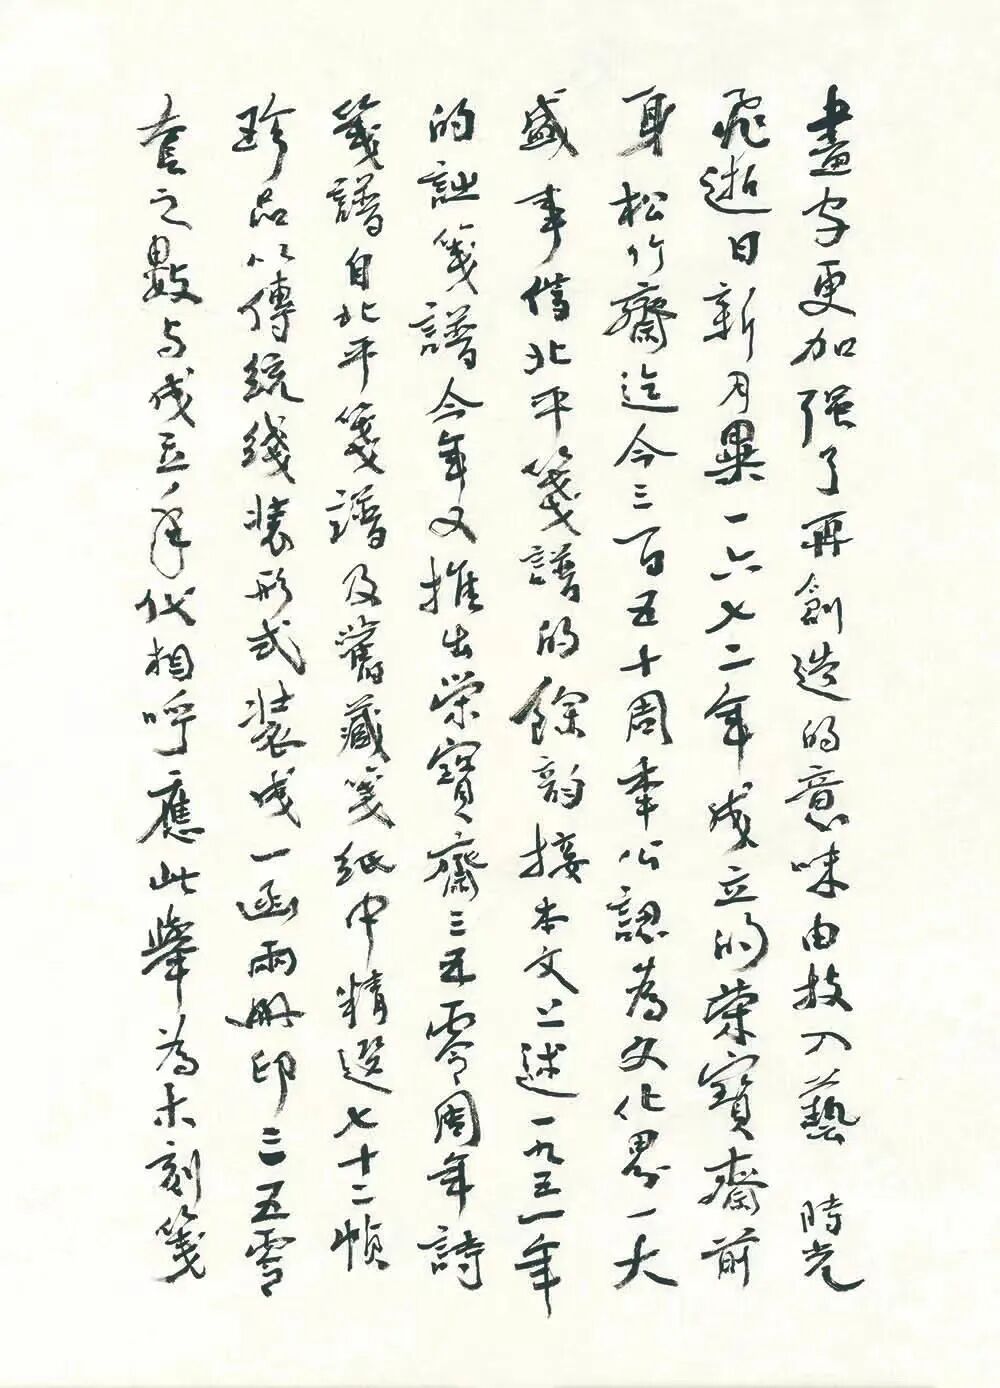 畫字更加强了再創造的意味由技入藝 時光
飛逝日新月異一六七二年成立的榮寶齋前
身松竹齋迄今三百五十周年公認為文化界一大
盛事借北平箋譜的餘韵接本文上述一九五一年
的詩箋譜今年又推出榮寶齋三五零周年詩
箋譜自北平箋譜及舊藏箋紙中精選七十二幀
珍品以傳統綫装形式装成一函兩册印三五零
套之數与成立年代相呼應此舉為木刻箋